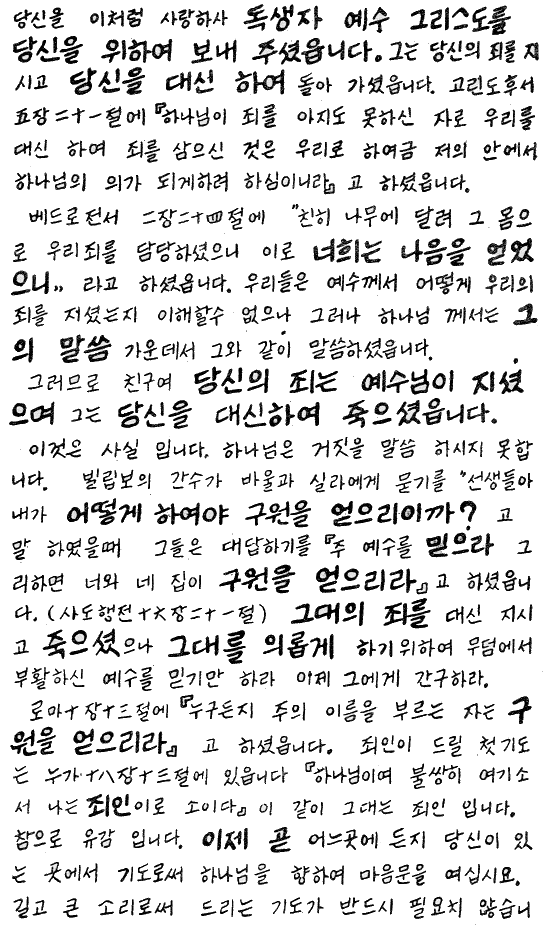 당신을 이처럼 사랑하사 독생자 예수 그리스도를
당신을 위하여 보내 주셨읍니다. 그는 당신의 죄를 지
시고 당신을 대신 하여 돌아 가셨읍니다. 고린도후서
五장二十一절에 『하나님이 죄를 아지도 못하신 자로 우리를
대신 하여 죄를 삼으신 것은 우리로 하여금 저의 안에서
하나님의 의가 되게하려 하심이니라』 고 하셨읍니다.
베드로전서 二장二十四절에 "친히 나무에 달려 그 몸으
로 우리죄를 담당하셨으니 이로 너희는 나음을 얻었
으니" 라고 하셨읍니다. 우리들은 예수께서 어떻게 우리의
죄를 저셨는지 이해할수 없으나 그러나 하나님 께서는 그
의 말씀 가운데서 그와 같이 말씀하셨읍니다.
그러므로 친구여 당신의 죄는 예수님이 지셨
으며 그는 당신을 대신하여 죽으셨읍니다.
이것은 사실 입니다. 하나님은 거짓을 말씀 하시지 못합
니다. 빌립보의 간수가 바울과 실라에게 묻기를 "선생들아
내가 어떻게 하여야 구원을 얻으리이까? 고
말 하였을때 그들은 대답하기를 『주 예수를 믿으라 그
리하면 너와 네 집이 구원을 얻으리라』고 하셨읍니
다. (사도행전十六장二十一절) 그대의 죄를 대신 지시
고 죽으셨으나 그대를 의롭게 하기위하여 무덤에서
부활하신 예수를 믿기만 하라 이제 그에게 간구하라.
로마十장十三절에 『누구든지 주의 이름을 부르는 자는 구
원을 얻으리라』 고 하셨읍니다. 죄인이 드릴 첫기도
는 누가十八장十三절에 있읍니다 『하나님이여 불쌍히 여기소
서 나는 죄인이로 소이다』 이 같이 그대는 죄인 입니다.
참으로 유감 입니다. 이제 곧 어느곳에 든지 당신이 있
는 곳에서 기도로써 하나님을 향하여 마음문을 여십시요.
길고 큰 소리로써 드리는 기도가 반드시 필요치 않습니